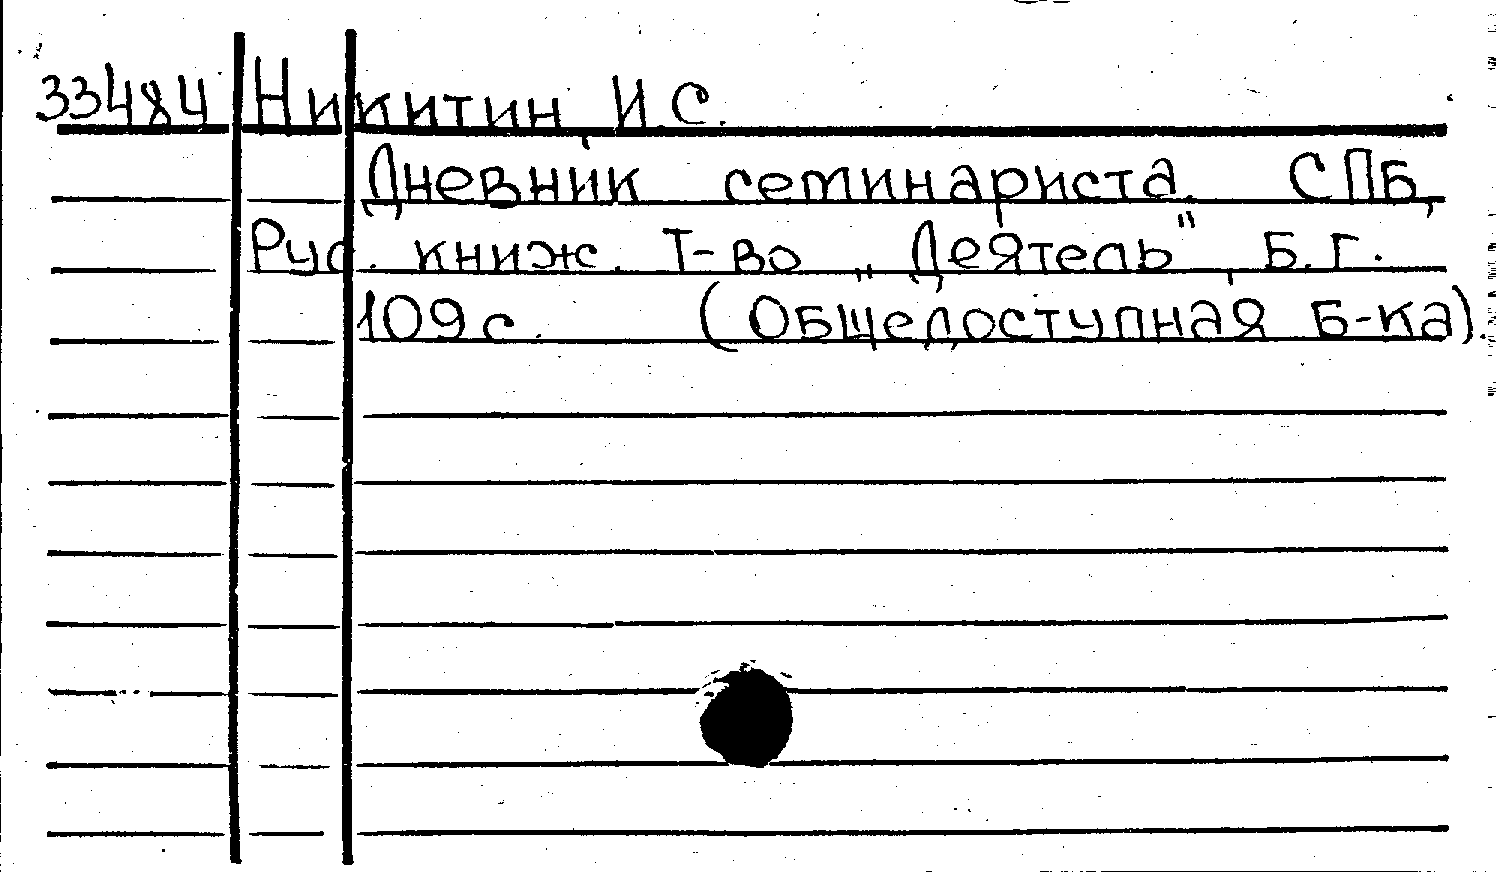 33484 Никитин, И.С.
Дневник семинариста. СПБ,
Рус. книж. Т-во „Деятель", Б.г.
109 с. (Общедоступная Б-ка).